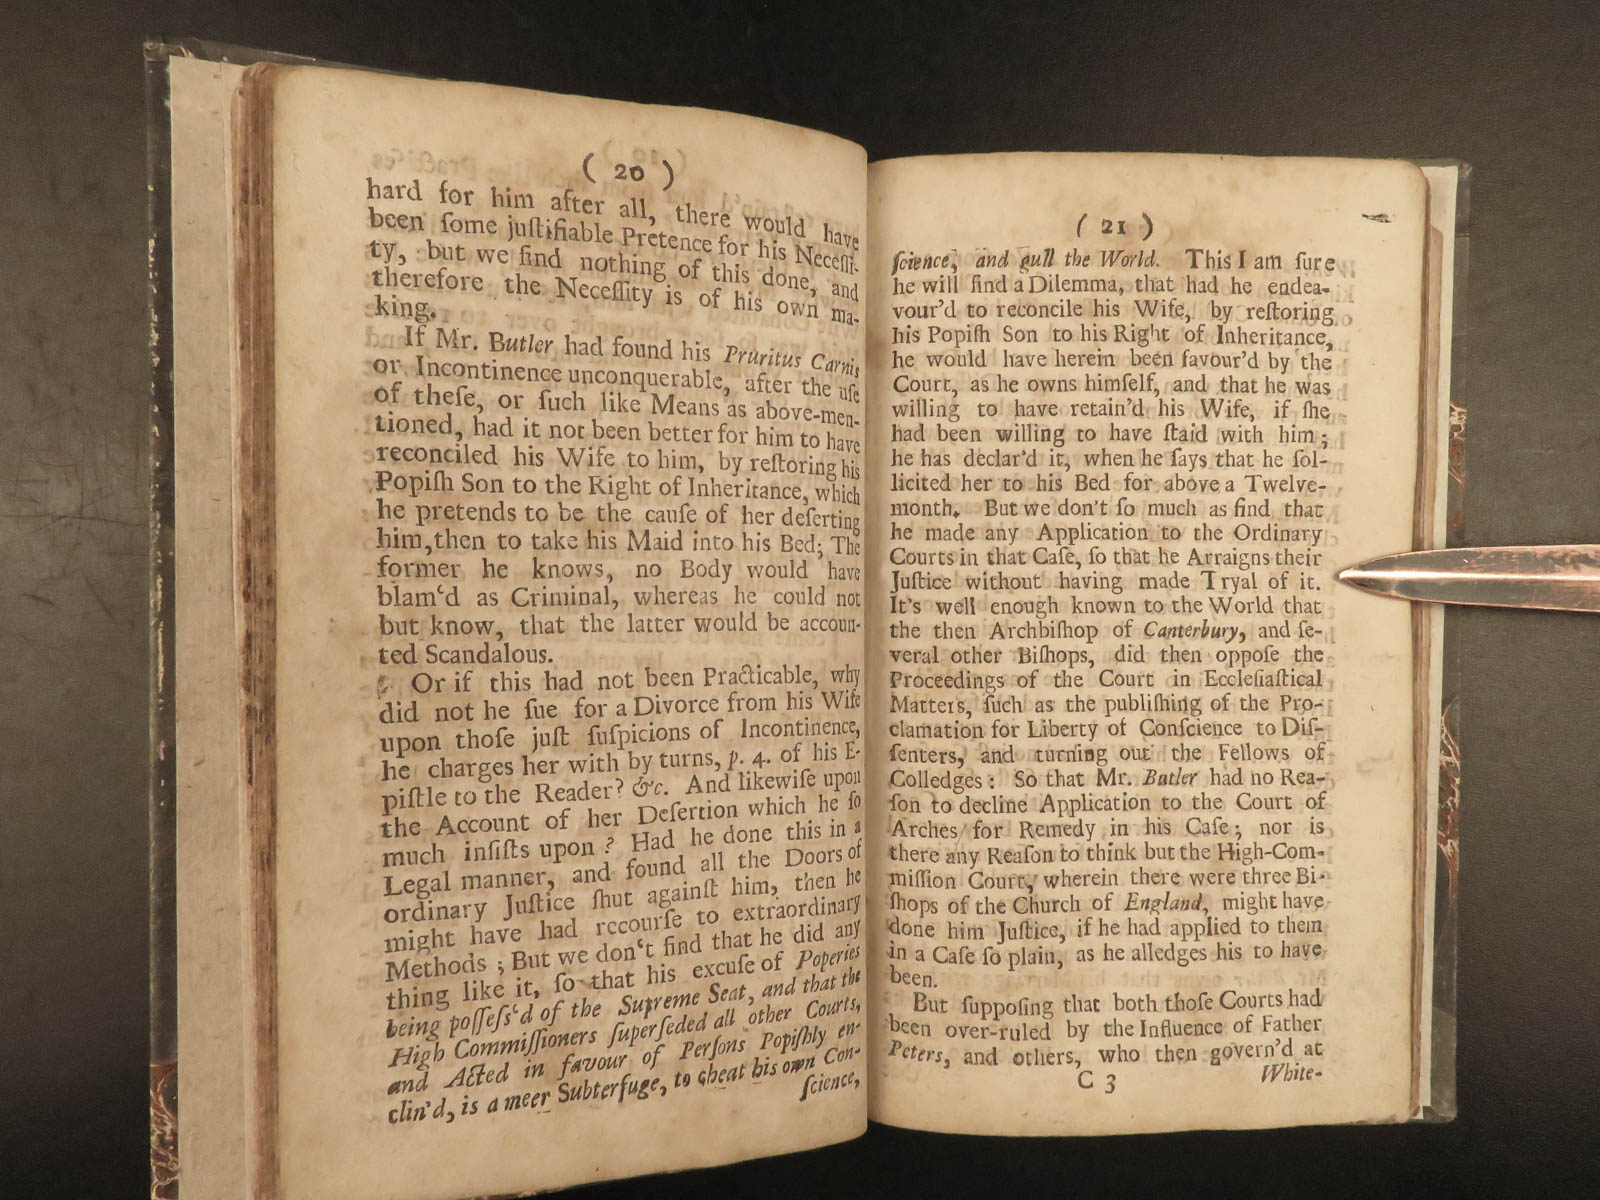 ( 20 )
hard for him after all, there would have
been ſome juſtifiable Pretence for his Neceſſi-
ty, but we find nothing of this done, and
therefore the Neceſſity is of his own ma-
king.
If Mr. Butler had found his Pruritus Carnis
or Incontinence unconquerable, after the uſe
of theſe, or ſuch like Means as above-men-
tioned, had it not been better for him to have
reconciled his Wife to him, by reſtoring his
Popiſh Son to the Right of Inheritance, which
he pretends to be the cauſe of her deſerting
him, then to take his Maid into his Bed; The
former he knows, no Body would have
blam‘d as Criminal, whereas he could not
but know, that the latter would be accoun-
ted Scandalous.
Or if this had not been Practicable, why
did not he ſue for a Divorce from his Wife
upon thoſe juſt ſuſpicions of Incontinence,
he charges her with by turns, p. 4. of his E-
piſtle to the Reader? &c. And likewiſe upon
the Account of her Deſertion which he ſo
much inſiſts upon? Had he done this in a
Legal manner, and found all the Doors of
ordinary Juſtice ſhut againſt him, then he
might have had recourſe to extraordinary
Methods; But we don‘t find that he did any
thing like it, ſo that his excuſe of Poperies
being poſſeſs‘d of the Supreme Seat, and that the
High Commiſſioners ſuperſeded all other Courts,
and Acted in favour of Perſons Popiſhly en-
clin’d, is a meer Subterfuge, to cheat his own Con-
ſcience,
( 21 )
ſcience, and gull the World. This I am ſure
he will find a Dilemma, that had he endea-
vour’d to reconcile his Wife, by reſtoring
his Popiſh Son to his Right of Inheritance,
he would have herein been favour’d by the
Court, as he owns himſelf, and that he was
willing to have retain’d his Wife, if ſhe
had been willing to have ſtaid with him;
he has declar’d it, when he ſays that he ſol-
licited her to his Bed for above a Twelve-
month. But we don’t ſo much as find that
he made any Application to the Ordinary
Courts in that Caſe, ſo that he Arraigns their
Juſtice without having made Tryal of it.
It’s well enough known to the World that
the then Archbiſhop of Canterbury, and ſe-
veral other Biſhops, did then oppoſe the
Proceedings of the Court in Eccleſiaſtical
Matters, ſuch as the publiſhing of the Pro-
clamation for Liberty of Conſcience to Diſ-
ſenters, and turning out the Fellows of
Colledges: So that Mr. Butler had no Rea-
ſon to decline Application to the Court of
Arches for Remedy in his Caſe; nor is
there any Reaſon to think but the High-Com-
miſſion Court, wherein there were three Bi-
ſhops of the Church of England, might have
done him Juſtice, if he had applied to them
in a Caſe ſo plain, as he alledges his to have
been.
But ſuppoſing that both thoſe Courts had
been over-ruled by the Influence of Father
Peters, and others, who then govern’d at
C 3
White-